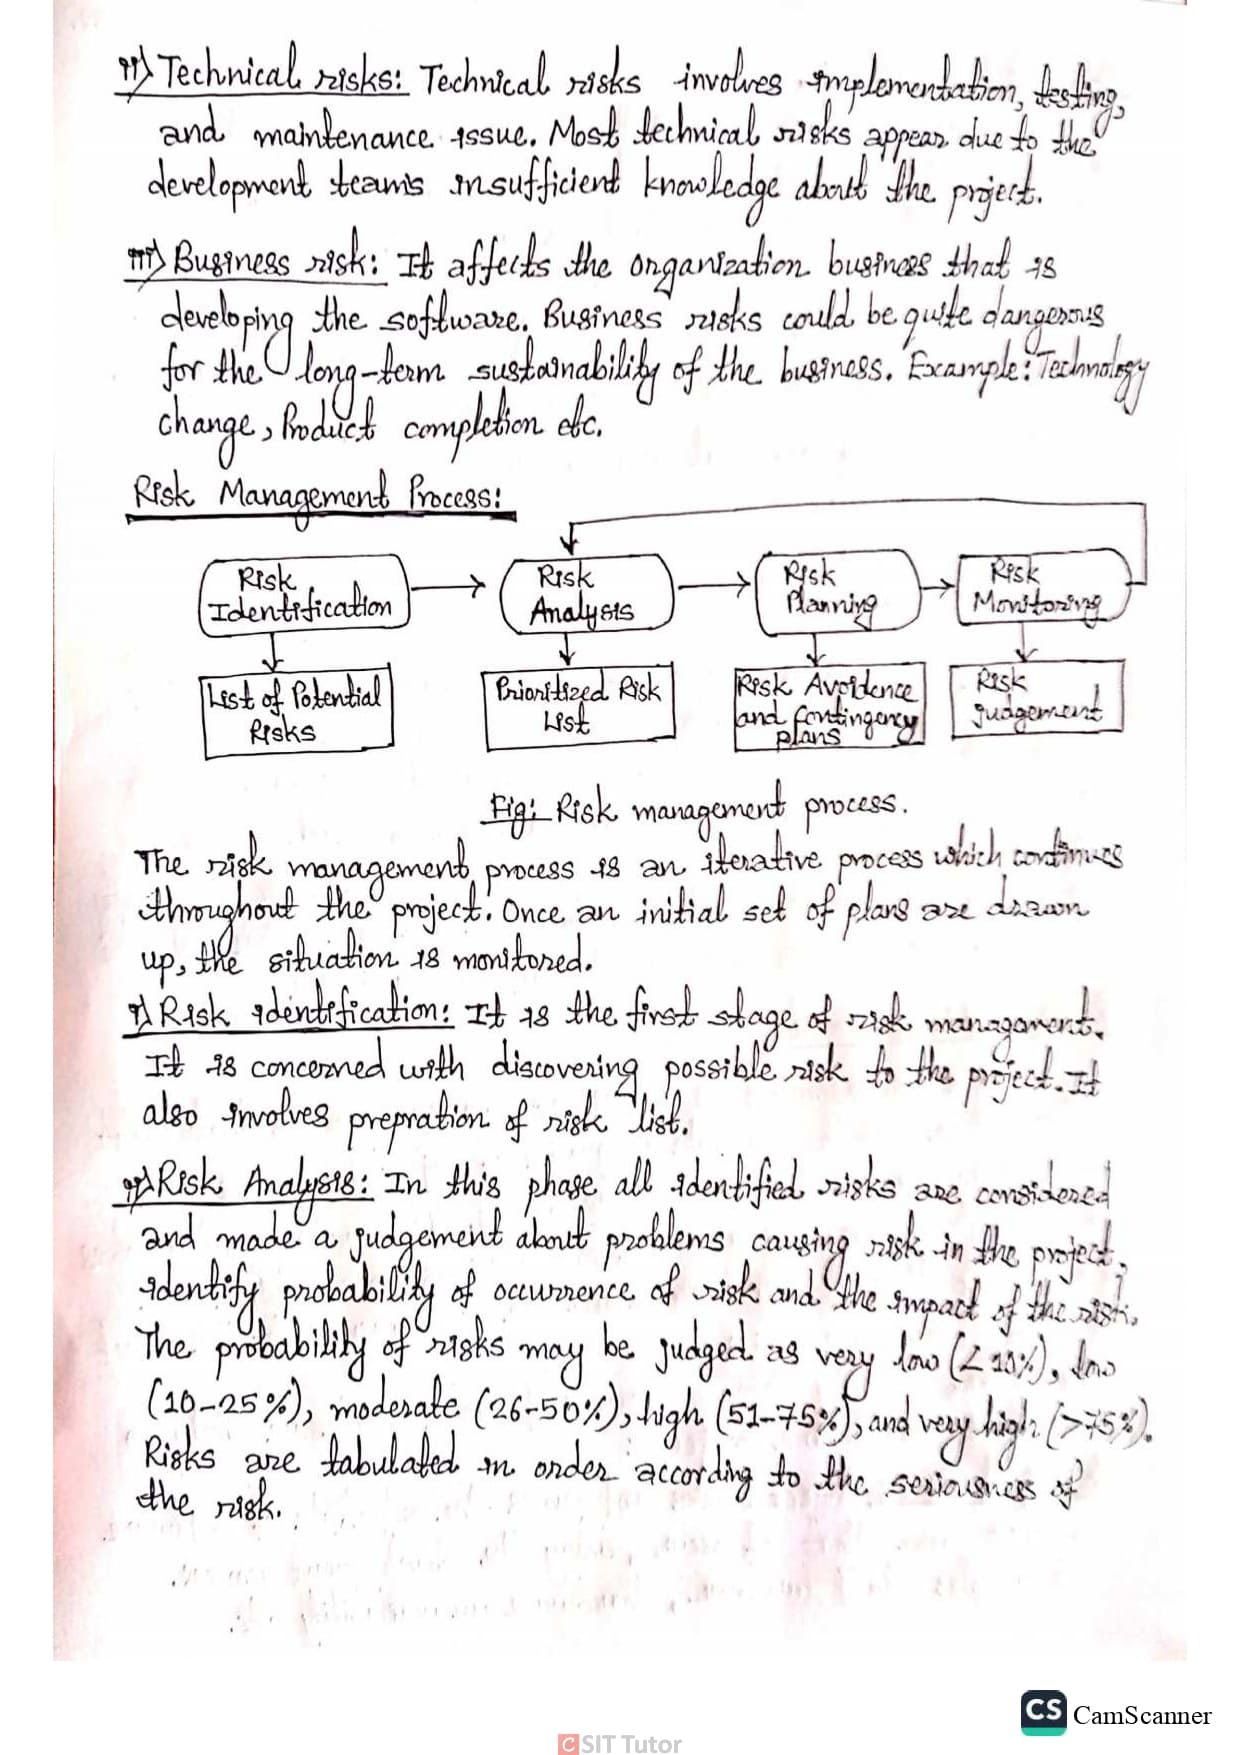 ii) Technical risks: Technical risks involves implementation, testing,
and maintenance issue. Most technical risks appear due to the
development team's insufficient knowledge about the project.
iii) Business risk: It affects the organization business that is
developing the software. Business risks could be quite dangerous
for the long-term sustainability of the business. Example: Technology
change, Product completion etc.
Risk Management Process:
Risk
Identification
Risk
Analysis
Risk
Planning
Risk
Monitoring
List of Potential
Risks
Prioritized Risk
List
Risk Avoidence
and Contingency
plans
Risk
judgement
Fig: Risk management process.
The risk management process is an iterative process which continues
throughout the project. Once an initial set of plans are drawn
up, the situation is monitored.
i) Risk identification: It is the first stage of risk management.
It is concerned with discovering possible risk to the project. It
also involves prepration of risk list.
ii) Risk Analysis: In this phase all identified risks are considered
and made a judgement about problems causing risk in the project,
identify probability of occurrence of risk and the impact of the risk.
The probability of risks may be judged as very low (<10%), low
(10-25%), moderate (26-50%), high (51-75%), and very high (>75%).
Risks are tabulated in order according to the seriousness of
the risk.
CS CamScanner
CSIT Tutor